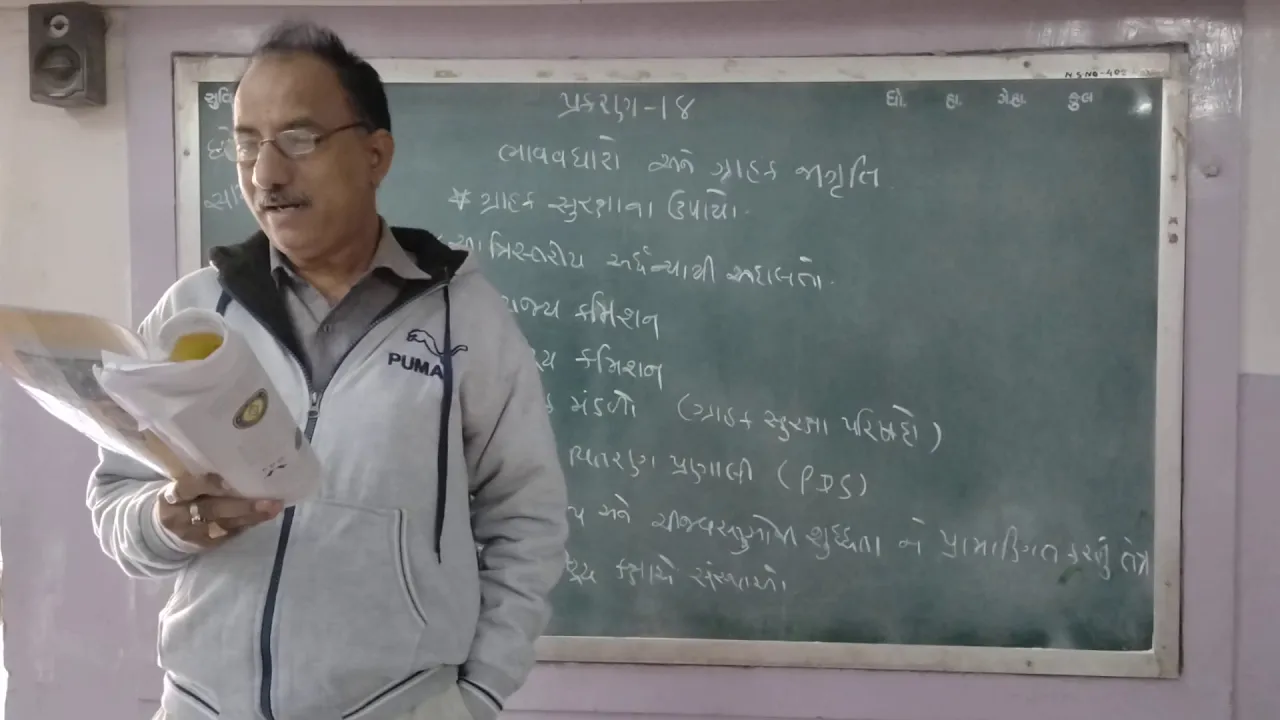 N.S NO-405
સુવિ
ધો. હા. ગેહા. કુલ
પ્રકરણ-૧૪
ભાવવધારો અને ગ્રાહક જાગૃતિ
* ગ્રાહક સુરક્ષાના ઉપાયો.
ત્રિસ્તરીય અર્ધન્યાયી અદાલતો.
રાજ્ય કમિશન
કમિશન
મંડળો (ગ્રાહક સુરક્ષા પરિષદો)
વિતરણ પ્રણાલી (PDS)
અને ચીજવસ્તુઓની શુદ્ધતા ને પ્રામાણિત કરનું તંત્ર
કક્ષાએ સંસ્થાઓ.
PUMA